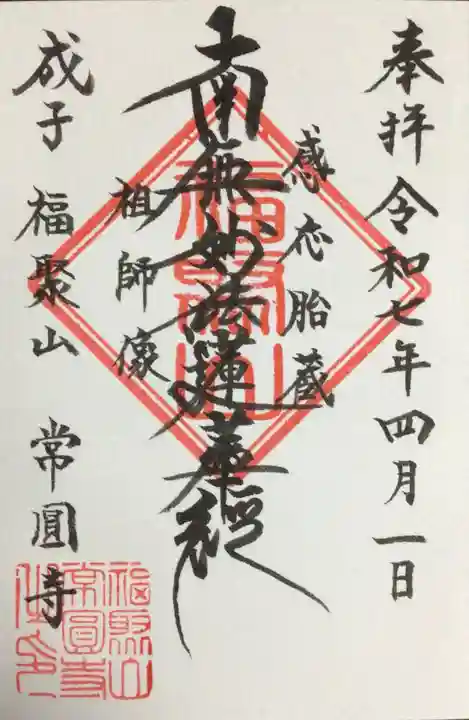 奉拝 令和七年四月一日
感応胎蔵
南無妙法蓮華経
祖師像
成子 福聚山 常圓寺
福聚山
福聚山
常圓寺